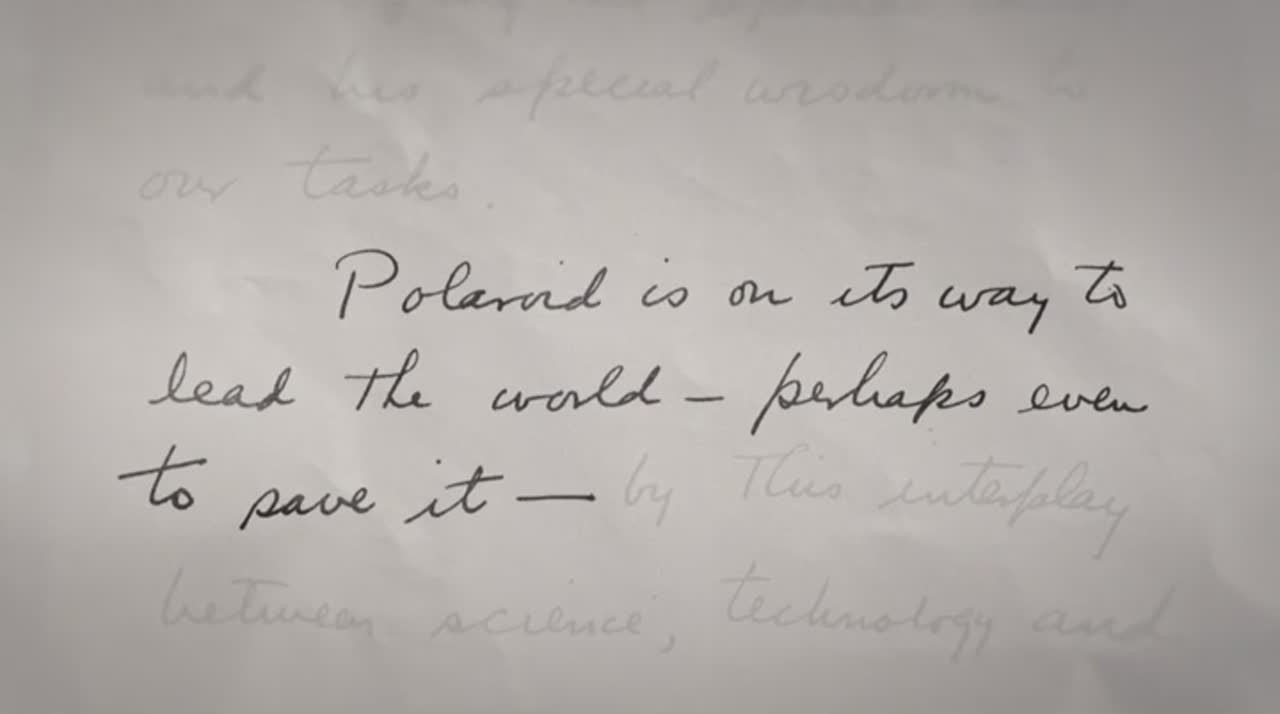 and his special wisdom to
our tasks.
Polaroid is on its way to
lead the world – perhaps even
to save it — by this interplay
between science, technology and